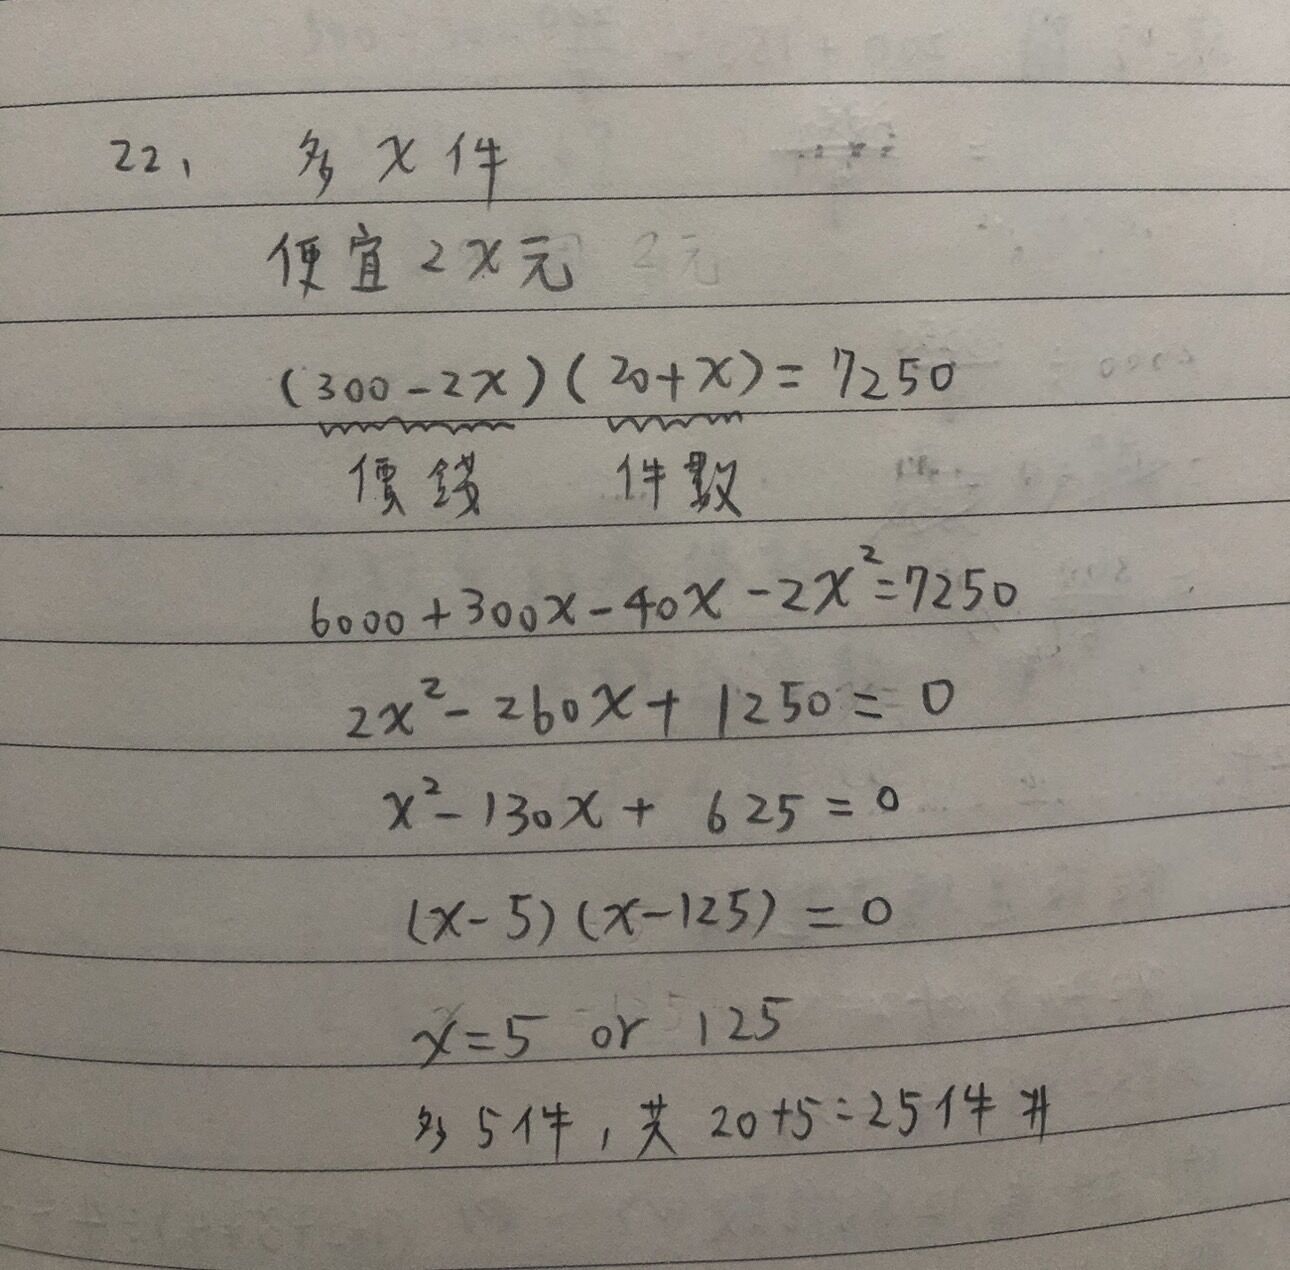 22, 多 x 件
便宜 2x元
(300-2x)(20+x)=7250
價錢 件數
6000+300x-40x-2x²=7250
2x²-260x+1250=0
x²-130x+625=0
(x-5)(x-125)=0
x=5 or 125
多5件,共 20+5=25件 #